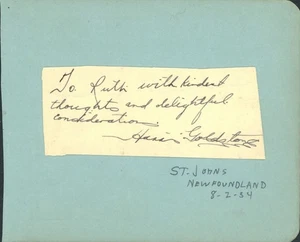 To Ruth with kindest
thoughts and delightful
consideration.
Goldstone
ST. JOHNS
NEWFOUNDLAND
8-2-54